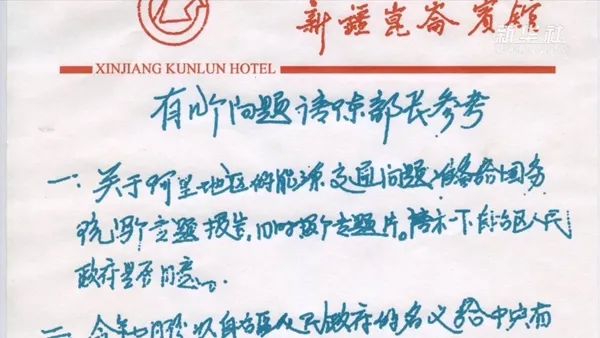 新华社
新疆崑崙賓館
XINJIANG KUNLUN HOTEL
有几个问题请陈部长参考
一、关于阿里地区的能源交通问题准备给国务
院写个专题报告,同时报个专题片。请示一下自治区人民
政府是否同意。
二、今年 月份以自治区人民政府的名义给中央有